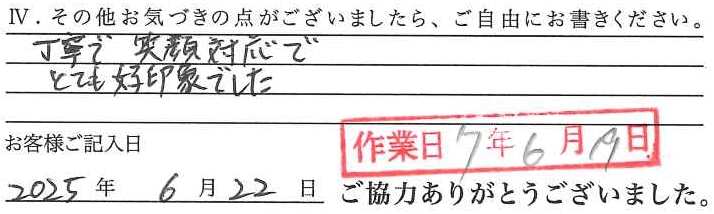 Ⅳ．その他お気づきの点がございましたら、ご自由にお書きください。
丁寧で 笑顔対応で
とても好印象でした
お客様ご記入日
作業日 7年 6月 19日
2025年 6月22日 ご協力ありがとうございました。